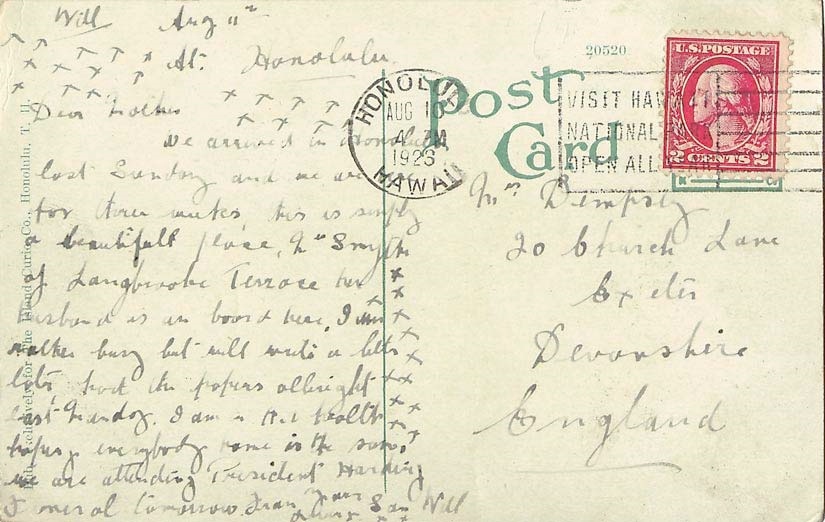 Will Aug 11th
At. Honolulu.
Dear Mother
We arrived in Honolulu
last Sunday and we are
for three weeks, this is simply
a beautifull place, Mrs Smythe
of Langbrooke Terrace her
husband is on board here, I am
rather busy but will write a letter
later, had the papers allright
last Sunday. I am in the health
hoping everybody home is the same,
we are attending President Harding
Funeral tomorrow, from your
loving Son Will
Pub. Exclusively for The Island Curio Co., Honolulu, T. H.
Post
Card
20520
U.S. POSTAGE
2 CENTS 2
HONOLULU
AUG 10
4 PM
1923
HAWAII
VISIT HAWAII
NATIONAL PARK
OPEN ALL YEAR
Mrs Dempsey
20 Church Lane
Exeter
Devonshire
England